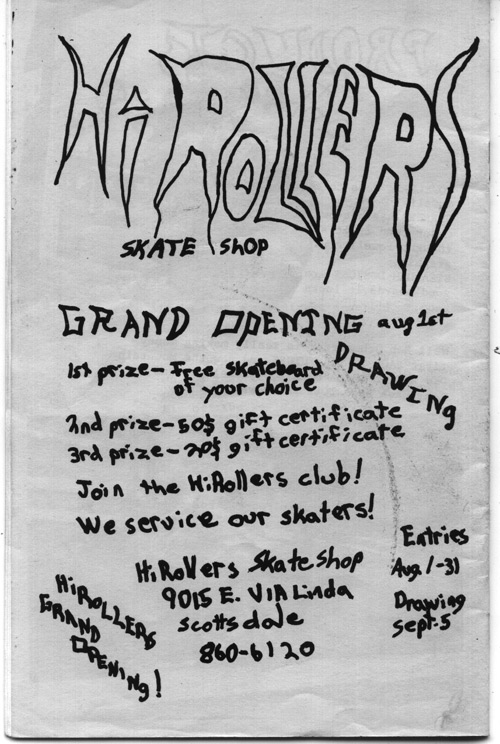 HiROLLERS
SKATE SHOP
GRAND OPENING aug 1st
DRAWING
1st prize - Free skateboard
of your choice
2nd prize - 50$ gift certificate
3rd prize - 20$ gift certificate
Join the HiRollers club!
We service our skaters!
HiRollers Skate Shop
9015 E. VIA Linda
Scottsdale
860-6120
Entries
Aug. 1-31
Drawing
Sept. 5
HiROLLERS
GRAND
OPENING!